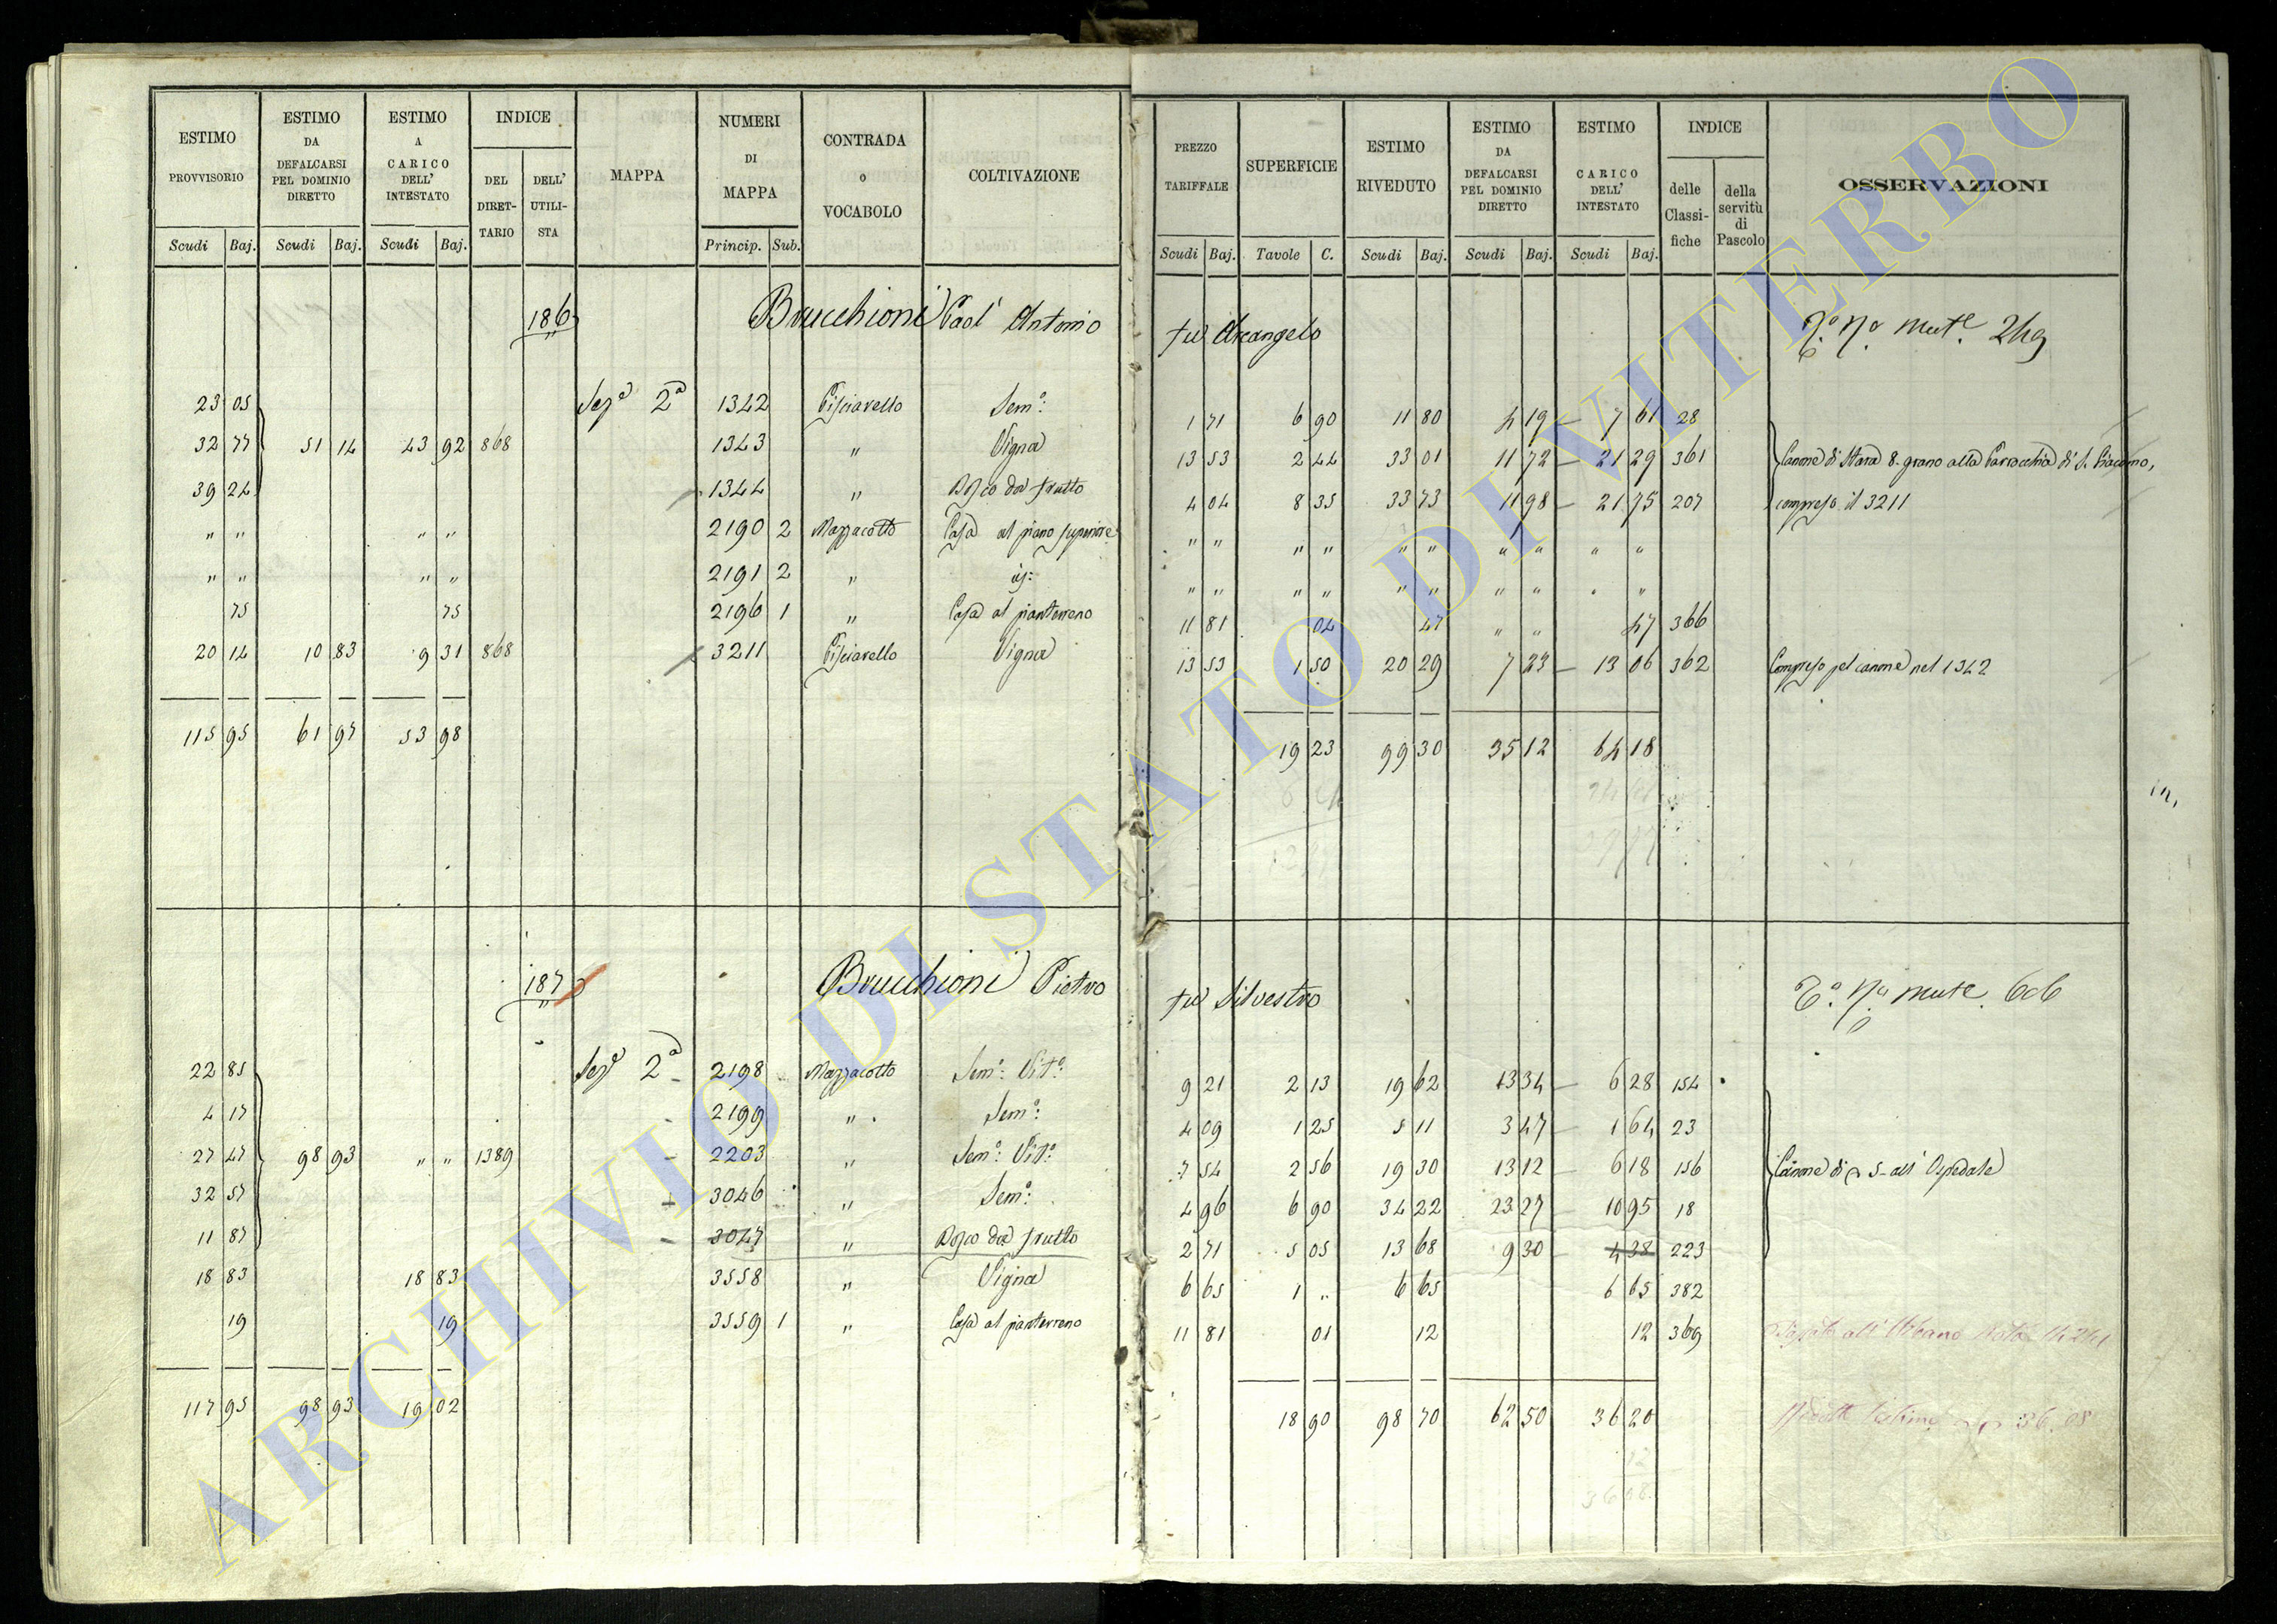 ESTIMO PROVVISORIO Scudi Baj.
ESTIMO DA DEFALCARSI PEL DOMINIO DIRETTO Scudi Baj.
ESTIMO A CARICO DELL' INTESTATO Scudi Baj.
INDICE DEL DIRETTARIO DELL' UTILISTA
MAPPA
NUMERI DI MAPPA Princip. Sub.
CONTRADA o VOCABOLO
COLTIVAZIONE
PREZZO TARIFFALE Scudi Baj.
SUPERFICIE Tavole C.
ESTIMO RIVEDUTO Scudi Baj.
ESTIMO DA DEFALCARSI PEL DOMINIO DIRETTO Scudi Baj.
ESTIMO CARICO DELL' INTESTATO Scudi Baj.
INDICE delle Classifiche della servitù di Pascolo
OSSERVAZIONI
186 Brucchioni Paol' Antonio fu Arcangelo 249
23 05 Sez.e 2a 1342 Pisciarello Sem.o: 1 71 6 90 11 80 4 19 7 61 28
32 77 51 14 43 92 868 1343 " Vigna 13 53 2 44 33 01 11 72 21 29 361 Canone di Stara 8. grano alla Parrocchia di S. Giacomo,
39 24 1344 " Bosco da frutto 4 04 8 35 33 73 11 98 21 75 207 compreso il 3211
" " " " 2190 2 Mazzacotto Casa al piano superiore " " " " " " " " " "
" " " " 2191 2 " " " " " " " " " " "
75 75 2196 1 " Casa al pianterreno 11 81 04 47 " " 47 366
20 14 10 83 9 31 868 3211 Pisciarello Vigna 13 53 1 50 20 29 7 23 13 06 362 Compreso pel canone nel 1342
115 95 61 97 53 98 19 23 99 30 35 12 64 18
187 Brucchioni Pietro fu Silvestro 606
22 85 Sez.e 2a 2198 Mazzacotto Sem.o: Vit.o: 9 21 2 13 19 62 13 34 6 28 154
4 17 2199 " Sem.o: 4 09 1 25 5 11 3 47 1 64 23
27 47 98 93 " " 1389 2203 " Sem.o: Vit.o: 7 54 2 56 19 30 13 12 6 18 156 Canone di 5 all' Ospedale
32 57 3046 " Sem.o: 4 96 6 90 34 22 23 27 10 95 18
11 87 3047 " Bosco da frutto 2 71 5 05 13 68 9 30 4 38 223
18 83 18 83 3558 " Vigna 6 65 1 " 6 65 6 65 382
19 19 3559 1 " Casa al pianterreno 11 81 01 12 12 369
117 95 98 93 19 02 18 90 98 70 62 50 36 20
12
36 08
ARCHIVIO DI STATO DI VITERBO